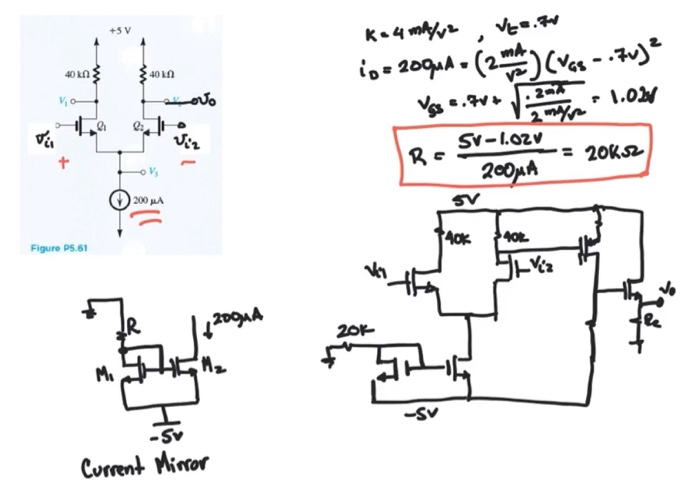 +5 V
40 kΩ
40 kΩ
V₁
υo
Q₁
Q₂
υi1
υi2
+
-
V₃
200 µA
Figure P5.61
K = 4 mA/V² , Vt = .7V
iD = 200µA = (2 mA/V²)(VGS - .7V)²
VGS = .7V + √(.2mA / 2 mA/V²) = 1.02V
R = (5V - 1.02V) / 200µA = 20KΩ
5V
40K
40K
Vi1
Vi2
Vo
20K
-5V
R
200µA
M₁
M₂
-5V
Current Mirror